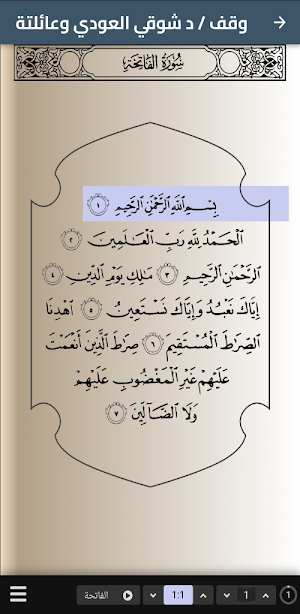 وقف / د شوقي العودي وعائلتة
سُورَةُ الفَاتِحَةِ
بِسْمِ ٱللَّهِ ٱلرَّحْمَٰنِ ٱلرَّحِيمِ ١
ٱلْحَمْدُ لِلَّهِ رَبِّ ٱلْعَٰلَمِينَ ٢
ٱلرَّحْمَٰنِ ٱلرَّحِيمِ ٣ مَٰلِكِ يَوْمِ ٱلدِّينِ ٤
إِيَّاكَ نَعْبُدُ وَإِيَّاكَ نَسْتَعِينُ ٥ ٱهْدِنَا
ٱلصِّرَٰطَ ٱلْمُسْتَقِيمَ ٦ صِرَٰطَ ٱلَّذِينَ أَنْعَمْتَ
عَلَيْهِمْ غَيْرِ ٱلْمَغْضُوبِ عَلَيْهِمْ
وَلَا ٱلضَّآلِّينَ ٧
الفاتحة 1:1 1 1